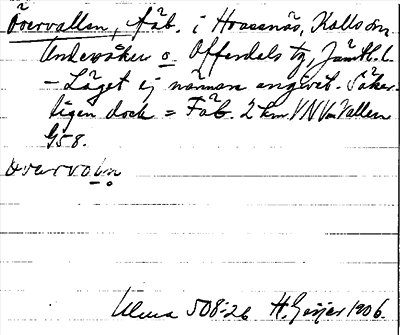 Övervallen, fäb. i Hoassnäs, Kalls sn
Undersåker o Offerdals tg, Jämtl. l.
- Läget ej närmare angivet. Säker-
ligen dock = Fäb. 2 km. VNV om Vallen
G58.
Ulma 508:26 H. Geijer 1906.